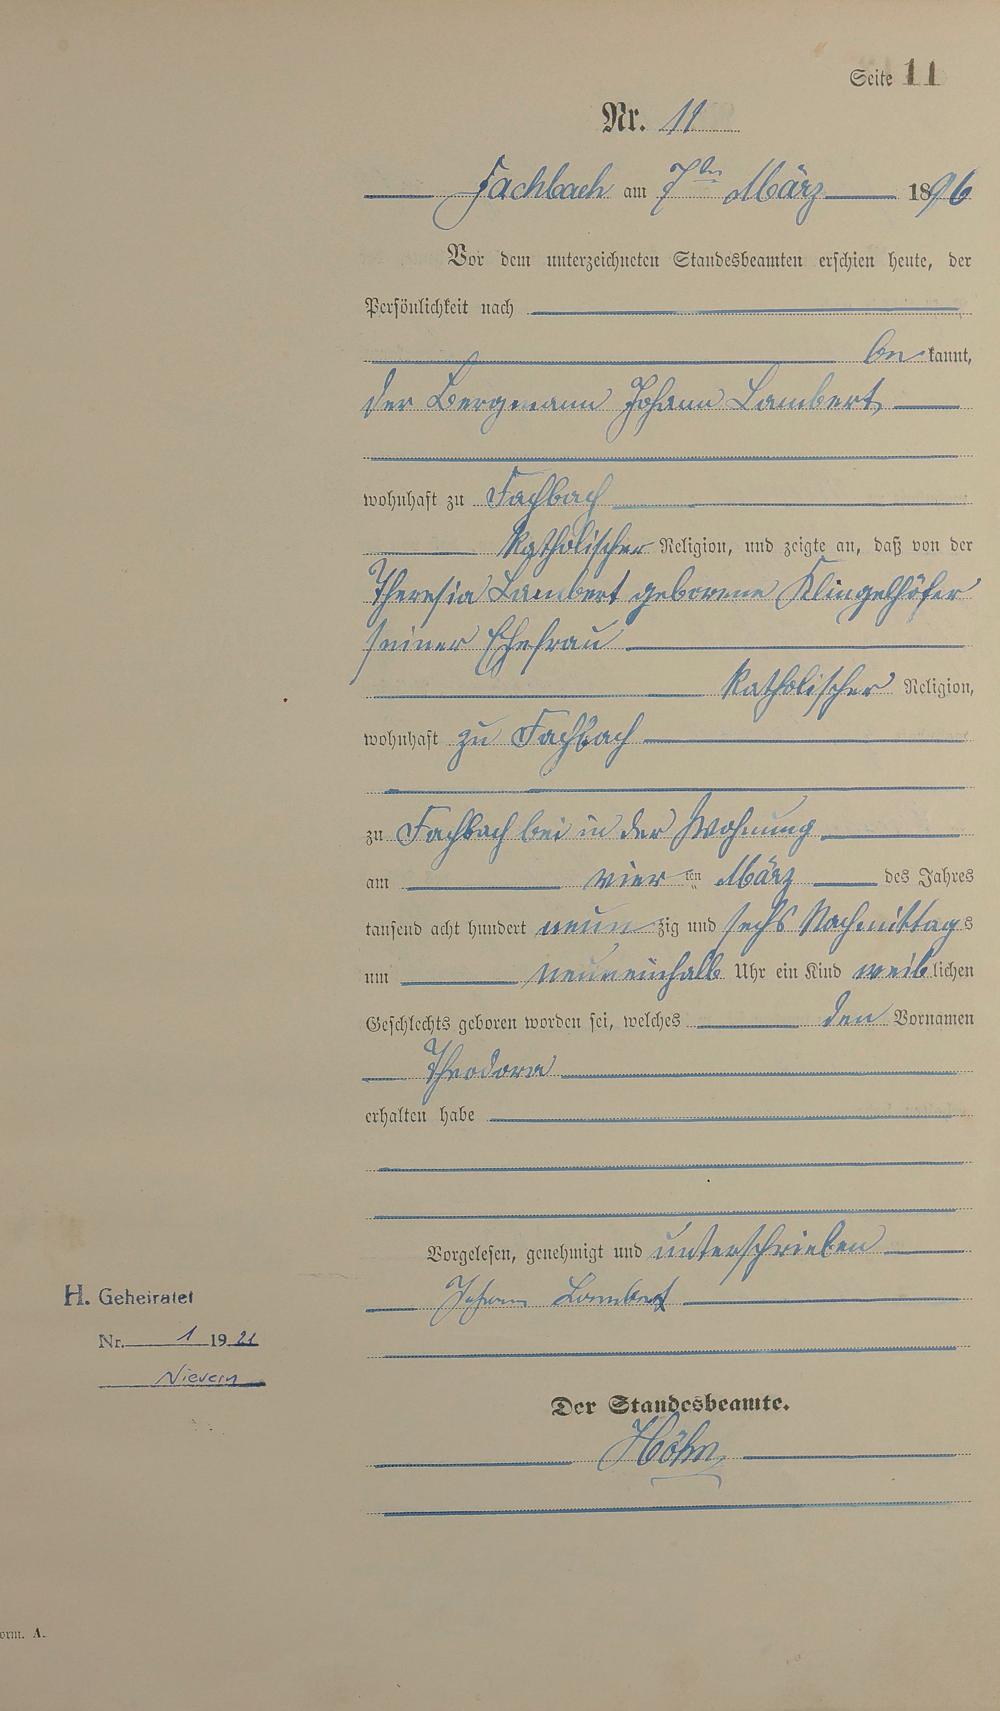 Seite 11
Nr. 11
Fachbach am 7ten März 1896
Vor dem unterzeichneten Standesbeamten erschien heute, der
Persönlichkeit nach
be kannt,
der Bergmann Johann Lambert
wohnhaft zu Fachbach
katholischer Religion, und zeigte an, daß von der
Theresia Lambert geborene Klingelhöfer
seiner Ehefrau
katholischer Religion,
wohnhaft zu Fachbach
zu Fachbach bei in der Wohnung
am vier ten März des Jahres
tausend acht hundert neun zig und sechs Nachmittags
um neuneinhalb Uhr ein Kind weiblichen
Geschlechts geboren worden sei, welches den Vornamen
Theodora
erhalten habe
Vorgelesen, genehmigt und unterschrieben
Johann Lambert
H. Geheiratet
Nr. 1 1921
Nievern
Der Standesbeamte.
Höhn
orm. A.